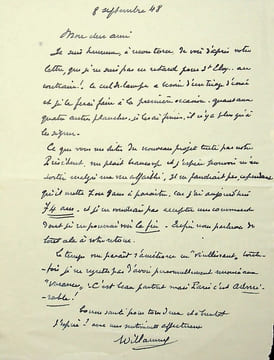 8 septembre 48
Mon cher ami
Je suis heureux, de voir d'après votre
lettre, que je ne suis pas en retard pour St Eloy. au
contraire! le cul de lampe a besoin d'un tirage d'essai
et je le ferai faire à la première occasion. quant aux
quatre autres planches, je les ai finies, il n'y a plus qu'à
les signer.
Ce que vous me dites du nouveau projet traité par notre
Président, me plait beaucoup et j'espère pouvoir m'en
sortir malgré ma vue affaiblie. Il ne faudrait pas cependant
qu'il mette 2 ou 3 ans à paraître, car j'ai aujourd'hui
74 ans. et je ne voudrais pas accepter une commande
dont je ne pourrais voir la fin. nous parlerons de
tout cela à votre retour.
Le temps me paraît s'améliorer en "vieillissant, toute-
fois je ne regrette pas d'avoir personnellement renoncé aux
"vacances". C'est beau partout mais Paris c'est ador-
rable!
Bonne santé pour vous deux et à bientôt
j'espère! avec mes sentiments affectueux
Willaume